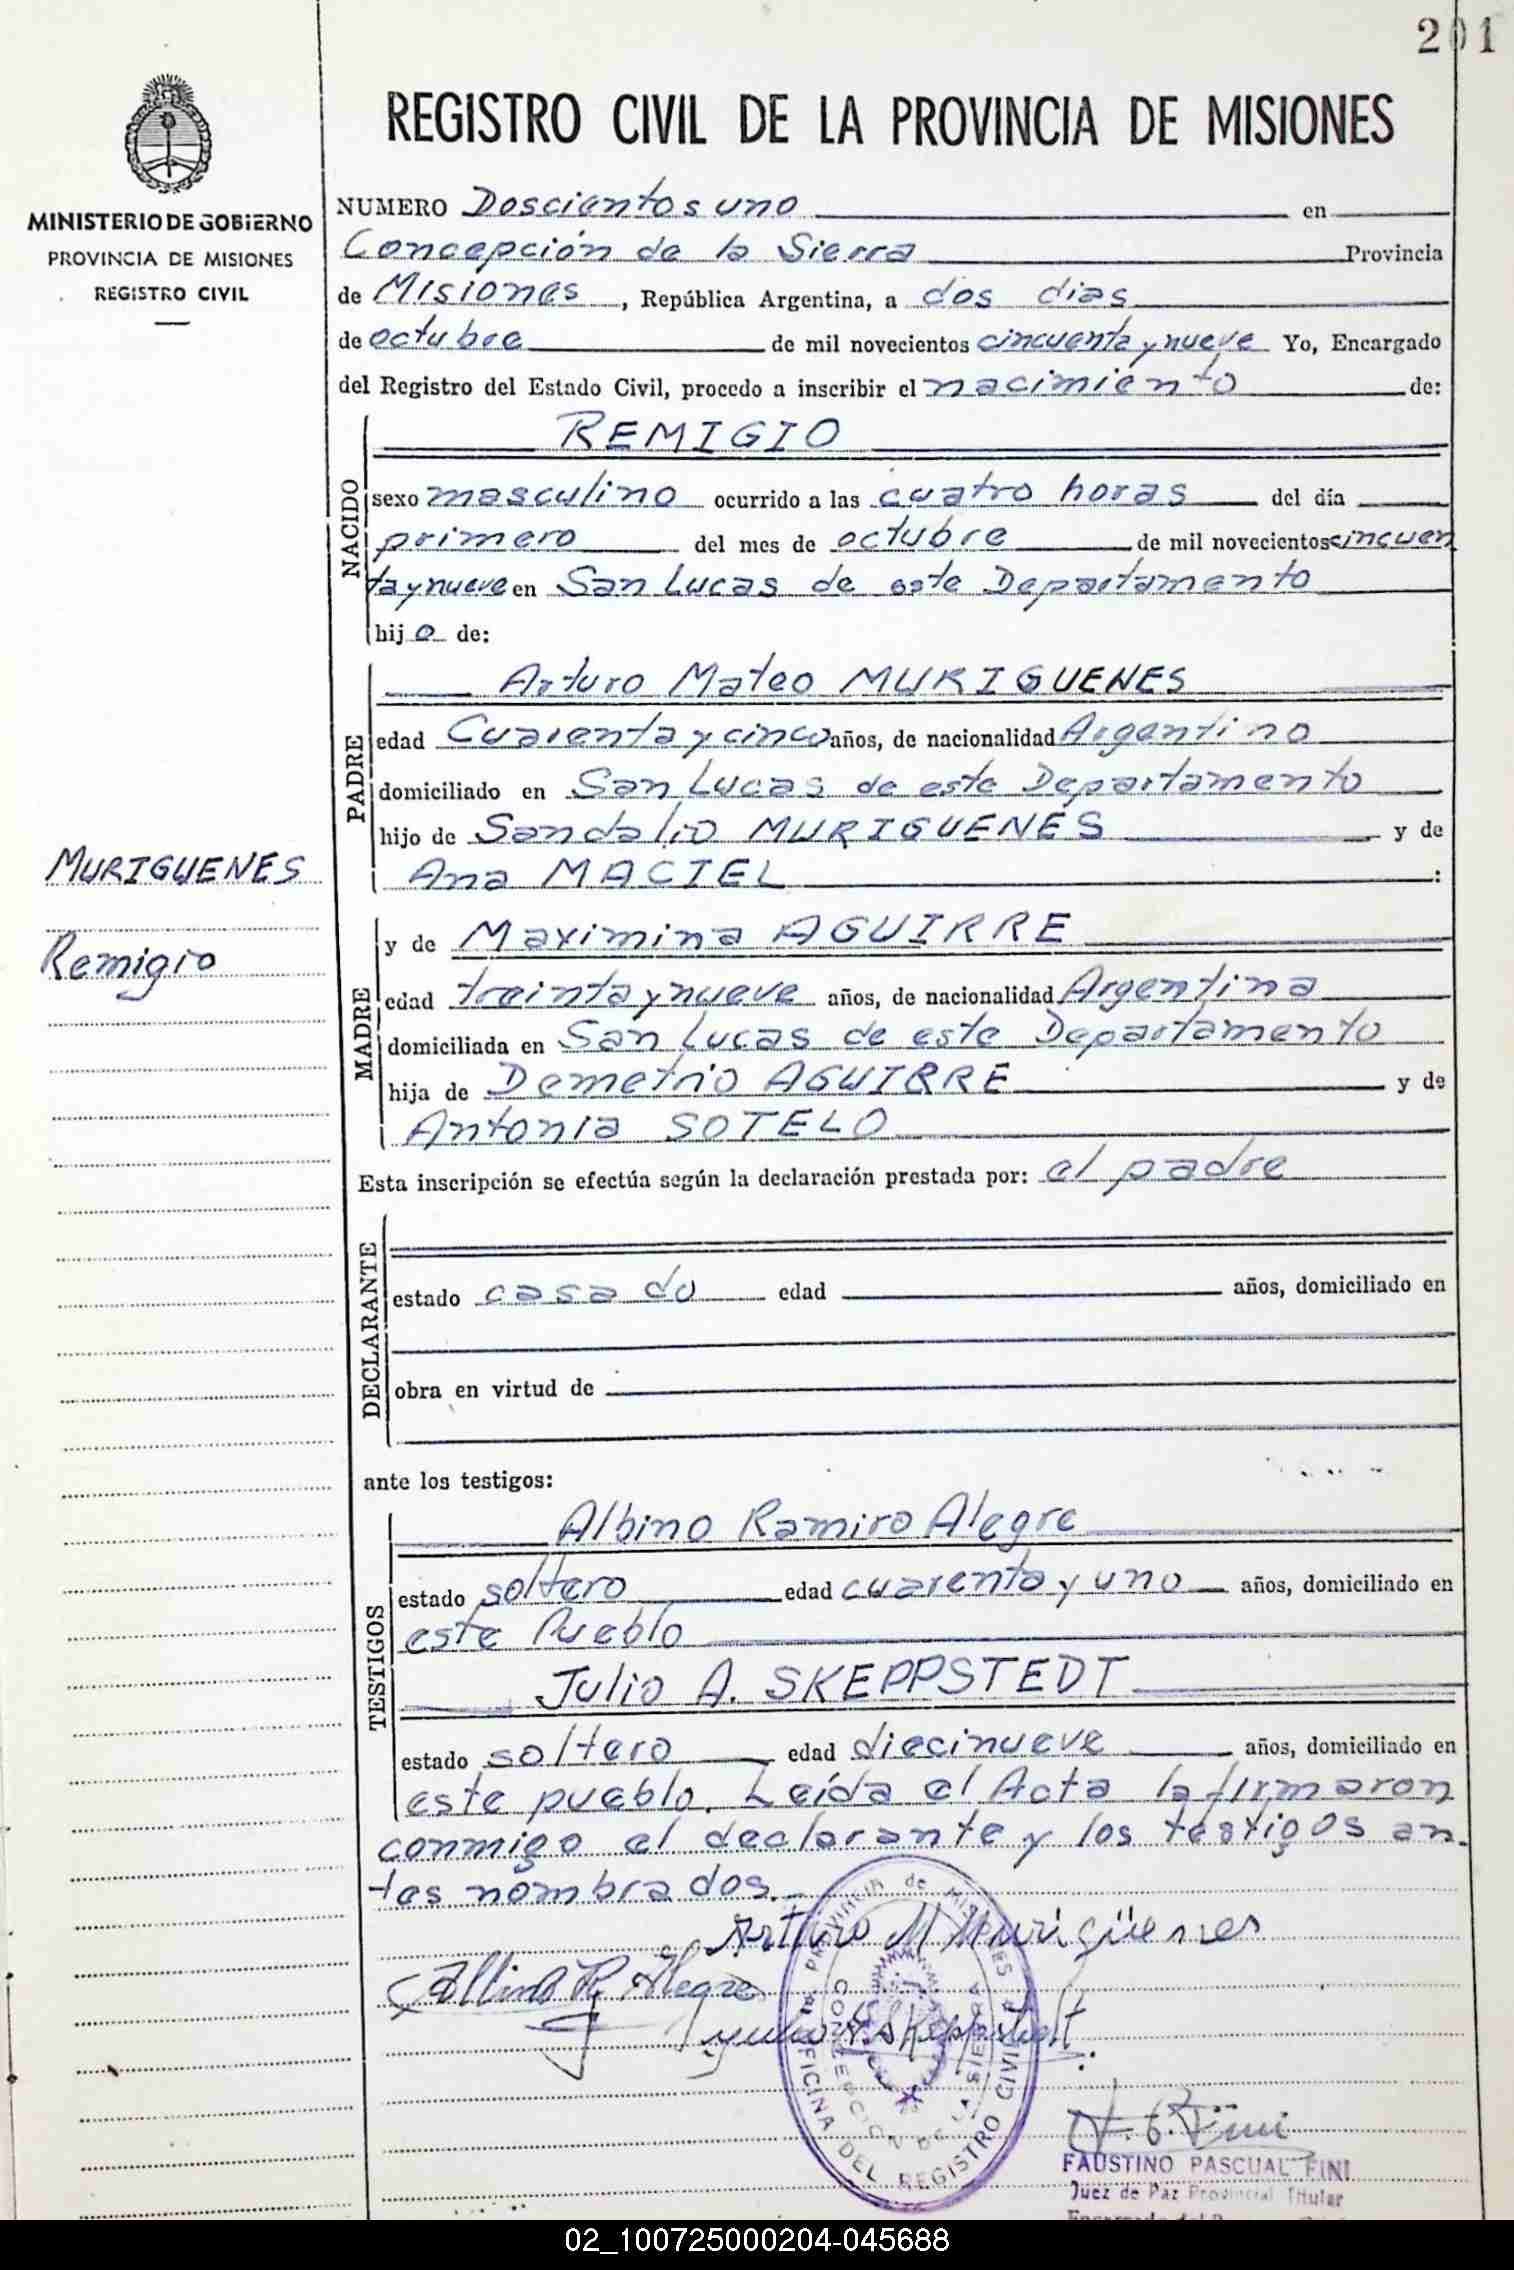 201
REGISTRO CIVIL DE LA PROVINCIA DE MISIONES
MINISTERIO DE GOBIERNO
PROVINCIA DE MISIONES
REGISTRO CIVIL
NUMERO Doscientos uno en
Concepción de la Sierra Provincia
de Misiones, República Argentina, a dos dias
de octubre de mil novecientos cincuenta y nueve Yo, Encargado
del Registro del Estado Civil, procedo a inscribir el nacimiento de:
NACIDO
REMIGIO
sexo masculino ocurrido a las cuatro horas del día
primero del mes de octubre de mil novecientos cincuen
ta y nueve en San Lucas de este Departamento
hijo de:
PADRE
Arturo Mateo MURIGUENES
edad Cuarenta y cinco años, de nacionalidad Argentino
domiciliado en San Lucas de este Departamento
hijo de Sandalio MURIGUENES y de
Ana MACIEL :
MURIGUENES
Remigio
MADRE
y de Maximina AGUIRRE
edad treinta y nueve años, de nacionalidad Argentina
domiciliada en San Lucas de este Departamento
hija de Demetrio AGUIRRE y de
Antonia SOTELO
Esta inscripción se efectúa según la declaración prestada por: el padre
DECLARANTE
estado casado edad años, domiciliado en
obra en virtud de
ante los testigos:
TESTIGOS
Albino Ramiro Alegre
estado soltero edad cuarenta y uno años, domiciliado en
este Pueblo
Julio A. SKEPPSTEDT
estado soltero edad diecinueve años, domiciliado en
este pueblo. Leída el Acta la firmaron
conmigo el declarante y los testigos an-
tes nombrados.
Arturo M Murigüenes
Albino R. Alegre
Julio A. Skeppstedt
PROVINCIA de MISIONES
OFICINA DEL REGISTRO CIVIL
CONCEPCION DE LA SIERRA
F. P. Fini
FAUSTINO PASCUAL FINI
Juez de Paz Provincial Titular
02_100725000204-045688